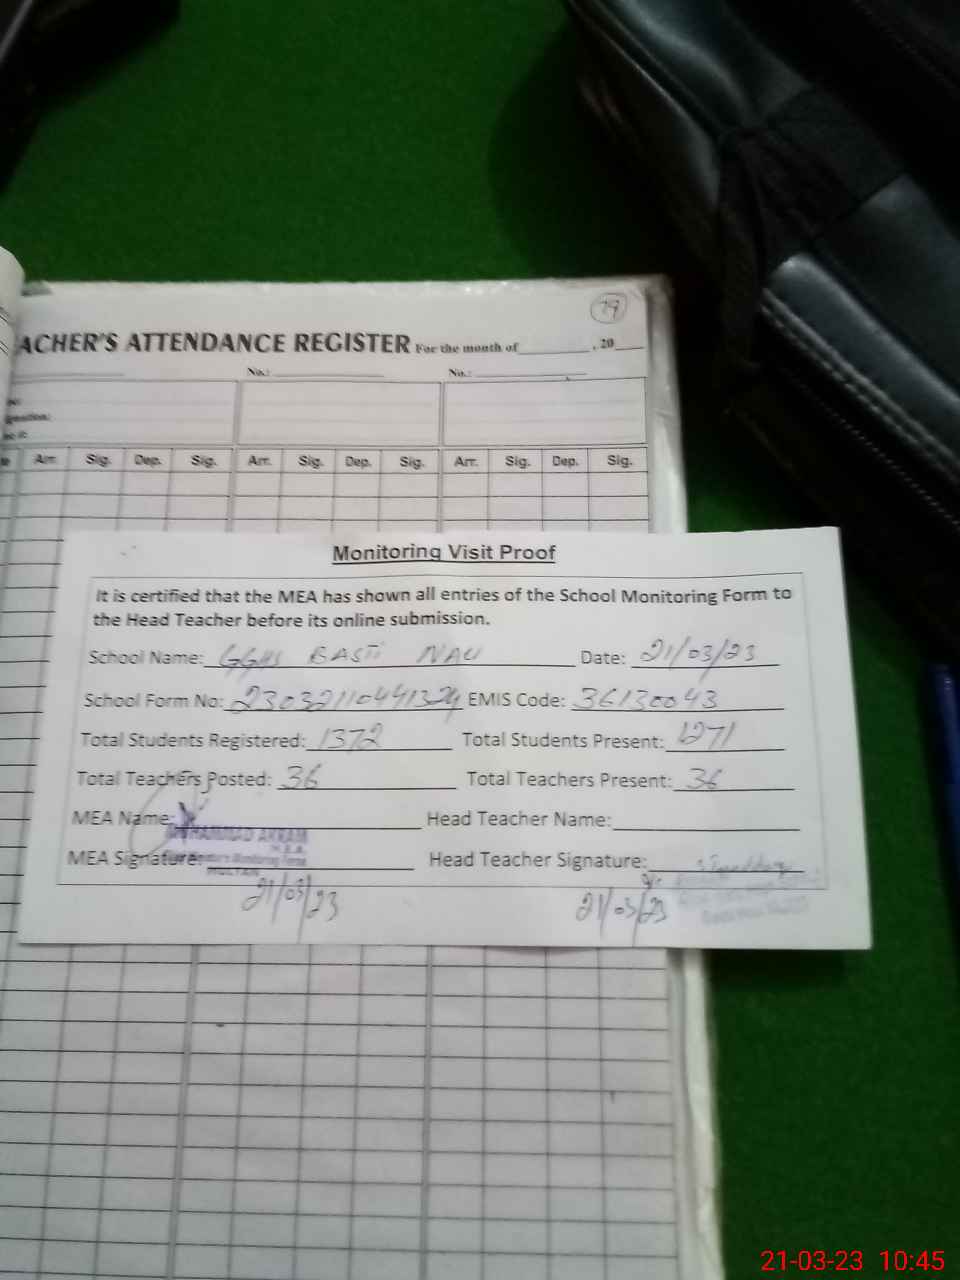 79
ACHER'S ATTENDANCE REGISTER For the month of , 20
No.: No.:
Arr. Sig. Dep. Sig. Arr. Sig. Dep. Sig. Arr. Sig. Dep. Sig.
Monitoring Visit Proof
It is certified that the MEA has shown all entries of the School Monitoring Form to
the Head Teacher before its online submission.
School Name: GGHS BASTI NAU Date: 21/03/23
School Form No: 23032110441324 EMIS Code: 36130043
Total Students Registered: 1372 Total Students Present: 1271
Total Teachers Posted: 36 Total Teachers Present: 36
MEA Name: Head Teacher Name:
MUHAMMAD AKRAM
M.E.A
MEA Signature: Monitoring Force Head Teacher Signature:
MULTAN
21/03/23 21/03/23
21-03-23 10:45